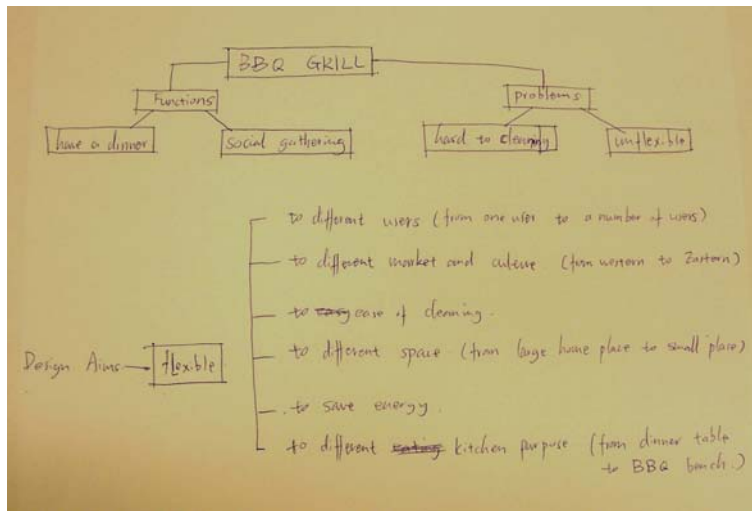 BBQ GRILL
Functions
problems
have a dinner
social gathering
hard to cleaning
unflexible
to different users (from one user to a number of users)
to different market and culture (from western to Eastern)
to easy ease of cleaning.
Design Aims flexible
to different space (from large home place to small place)
to save energy.
to different eating kitchen purpose (from dinner table
to BBQ bench.)